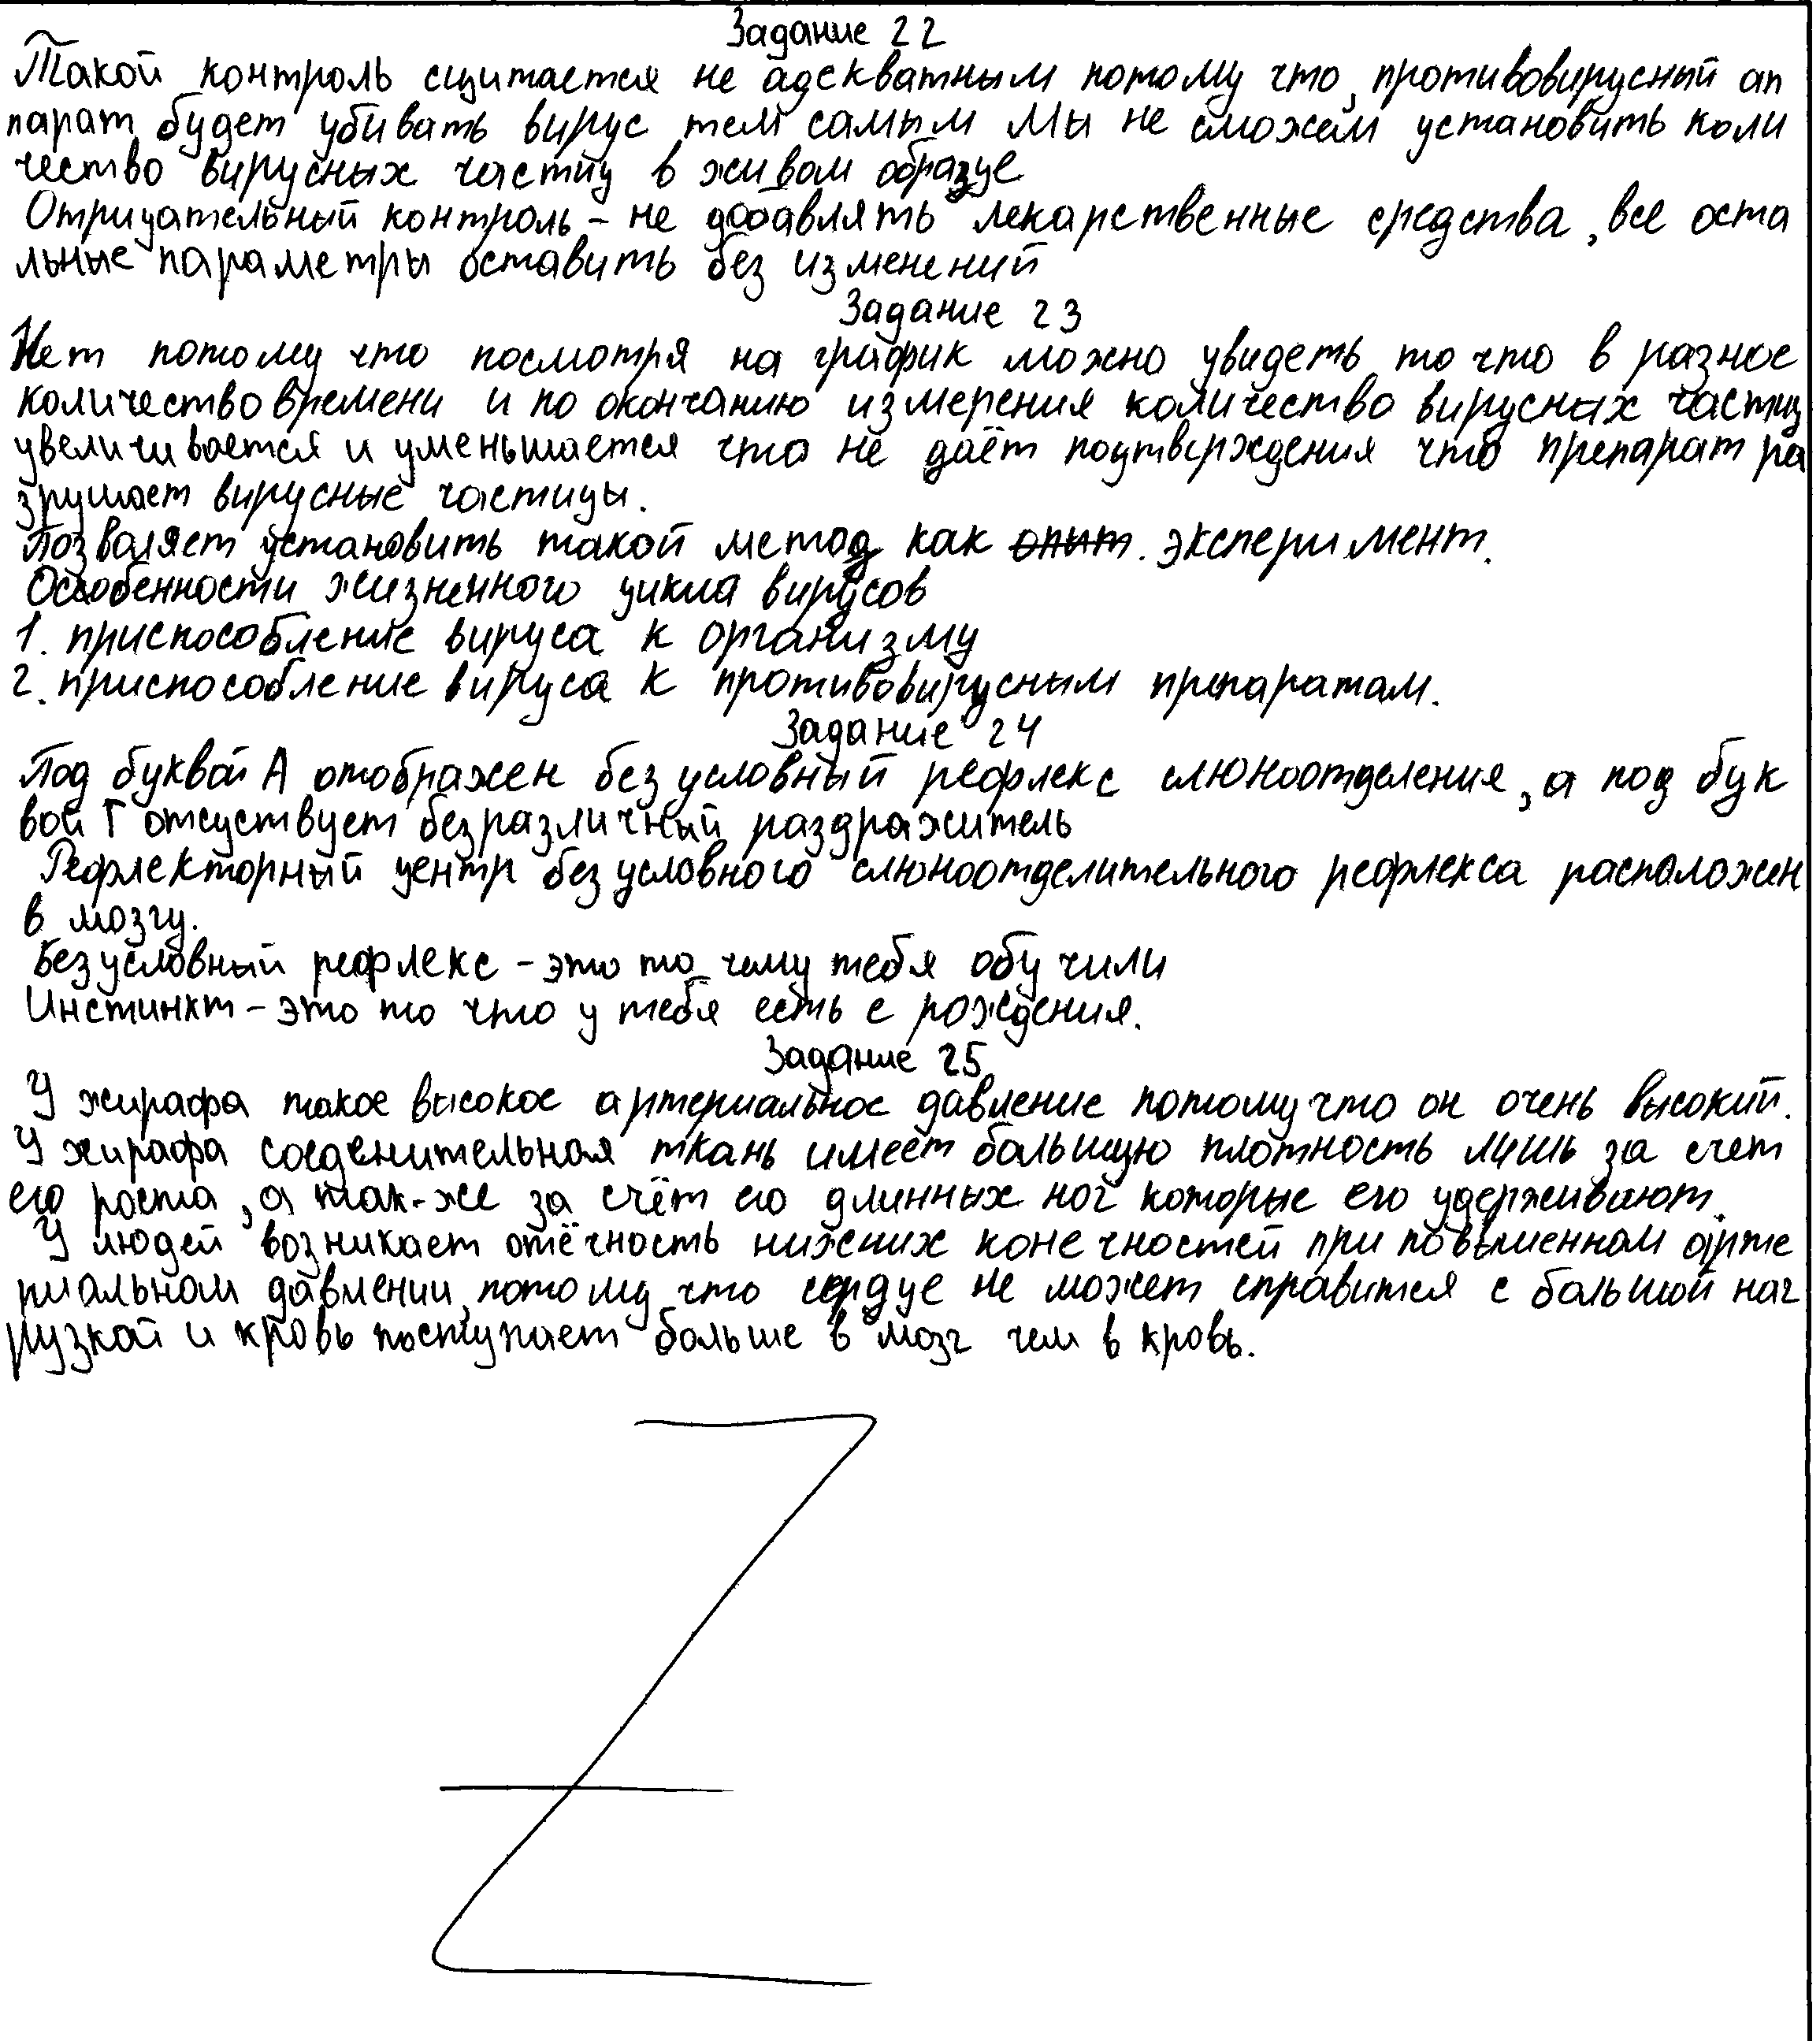 Задание 22
Такой контроль сщитается не адекватным потому что, противовирусный ап
парат будет убивать вирус тем самым мы не сможем установить коли
чество вирусных частиц в живом образце
Отрицательный контроль - не добавлять лекарственные средства, все оста
льные параметры оставить без изменений
Задание 23
Нет потому что посмотря на график можно увидеть то что в разное
количество времени и по окончанию измерения количество вирусных частиц
увеличивается и уменьшается что не даёт подтверждения что препарат ра
зрушает вирусные частицы.
Позволяет установить такой метод как опыт. эксперимент.
Особенности жизненного цикла вирусов
1. приспособление вируса к организму
2. приспособление вируса к противовирусным препаратам.
Задание 24
Под буквой А отображен безусловный рефлекс слюноотделения, а под бук
вой Г отсуствует безразличный раздражитель
Рефлекторный центр безусловного слюноотделительного рефлекса расположен
в мозгу.
Безусловный рефлекс - это то чему тебя обучили
Инстинкт - это то что у тебя есть с рождения.
Задание 25
У жирафа такое высокое артериальное давление потому что он очень высокий.
У жирафа соеденительная ткань имеет большую плотность лишь за счет
его роста, а так-же за счёт его длинных ног которые его удерживают.
У людей возникает отёчность нижних конечностей при повышенном арте
риальном давлении, потому что сердце не может справится с большой наг
рузкой и кровь поступает больше в мозг чем в кровь.